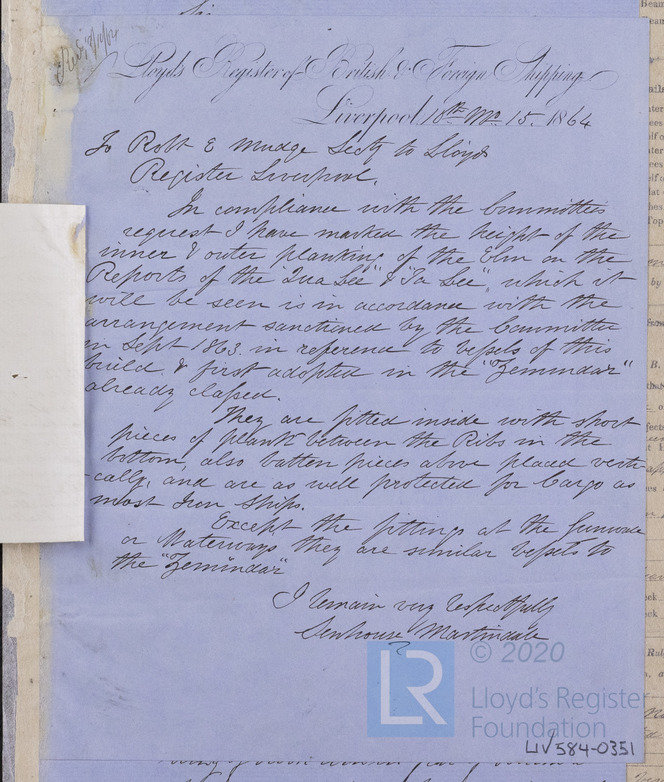 Lloyd's Register of British & Foreign Shipping.
Liverpool, 15. 1864
To Robt E Mudge Secty to Lloyds
Register Liverpool.
In compliance with the Committees
request I have marked the height of the
inner & outer planking of the Elm on the
Reports of the " See" & " See", which it
will be seen is in accordance with the
arrangement sanctioned by the Committee
in Sept 1863. in reference to vessels of this
build & first adopted in the "Zemindar"
already classed.
They are fitted inside with short
pieces of plank between the Ribs in the
bottom, also batten pieces above placed verti-
-cally, and are as well protected for Cargo as
most Iron Ships.
Except the fittings at the Gunwale
or Waterways they are similar vessels to
the "Zemindar"
I remain very respectfully
Senhouse Martindale
© 2020
LR
Lloyd's Register
Foundation
LIV584-0351